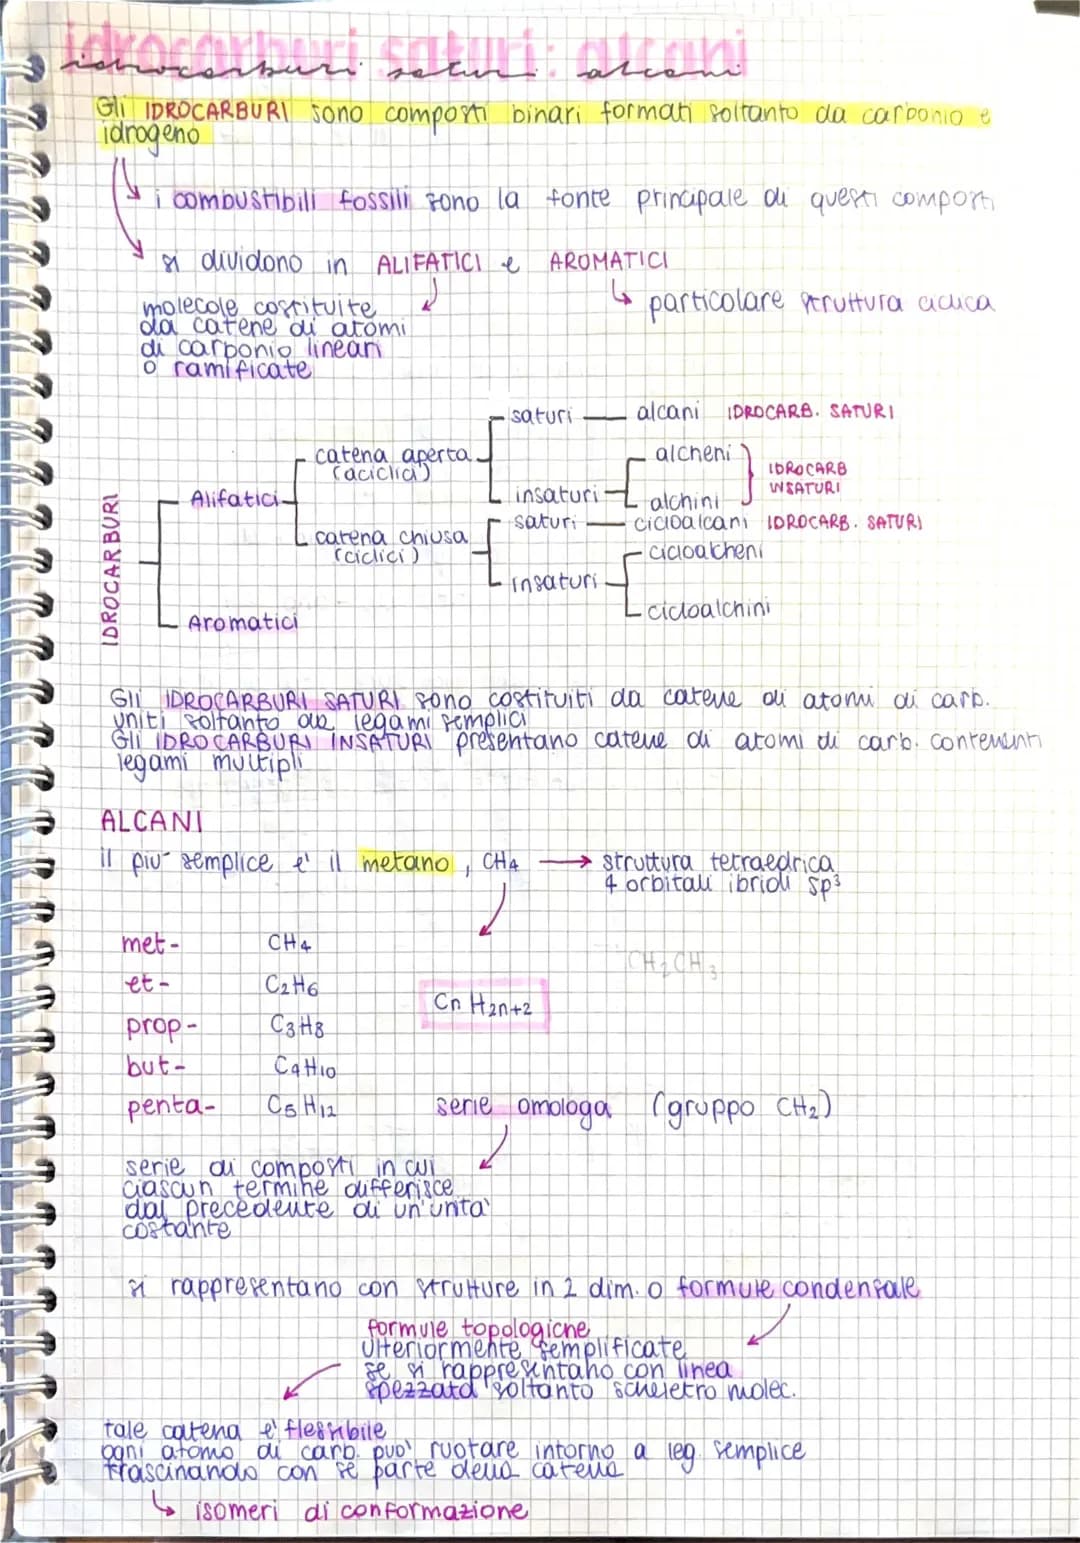 idrocarburi saturi: alcani
Gli IDROCARBURI sono composti binari formati soltanto da carbonio e
idrogeno
i combustibili fossili sono la fonte principale di questi composti
si dividono in ALIFATICI e AROMATICI
particolare struttura ciclica
molecole costituite
da catene di atomi
di carbonio lineari
o ramificate
IDROCARBURI
Alifatici
Aromatici
catena aperta
(aciclici)
catena chiusa
(ciclici)
saturi alcani IDROCARB. SATURI
insaturi
alcheni
alchini
IDROCARB
INSATURI
saturi cicloalcani IDROCARB. SATURI
insaturi
cicloalcheni
cicloalchini
Gli IDROCARBURI SATURI sono costituiti da catene di atomi di carb.
uniti soltanto da legami semplici
Gli IDROCARBURI INSATURI presentano catene di atomi di carb. contenenti
legami multipli
ALCANI
il piu' semplice e' il metano, CH4 → struttura tetraedrica
4 orbitali ibridi sp³
met- CH4
CH2CH3
et- C2H6
CnH2n+2
prop- C3H8
but- C4H10
penta- C5H12
serie omologa (gruppo CH2)
serie di composti in cui
ciascun termine differisce
dal precedente di un'unita'
costante
si rappresentano con strutture in 2 dim. o formule condensate
formule topologiche
ulteriormente semplificate
se si rappresentano con linea
spezzata soltanto scheletro molec.
tale catena e' flessibile
ogni atomo di carb. puo' ruotare intorno a leg. semplice
trascinando con sé parte della catena
isomeri di conformazione